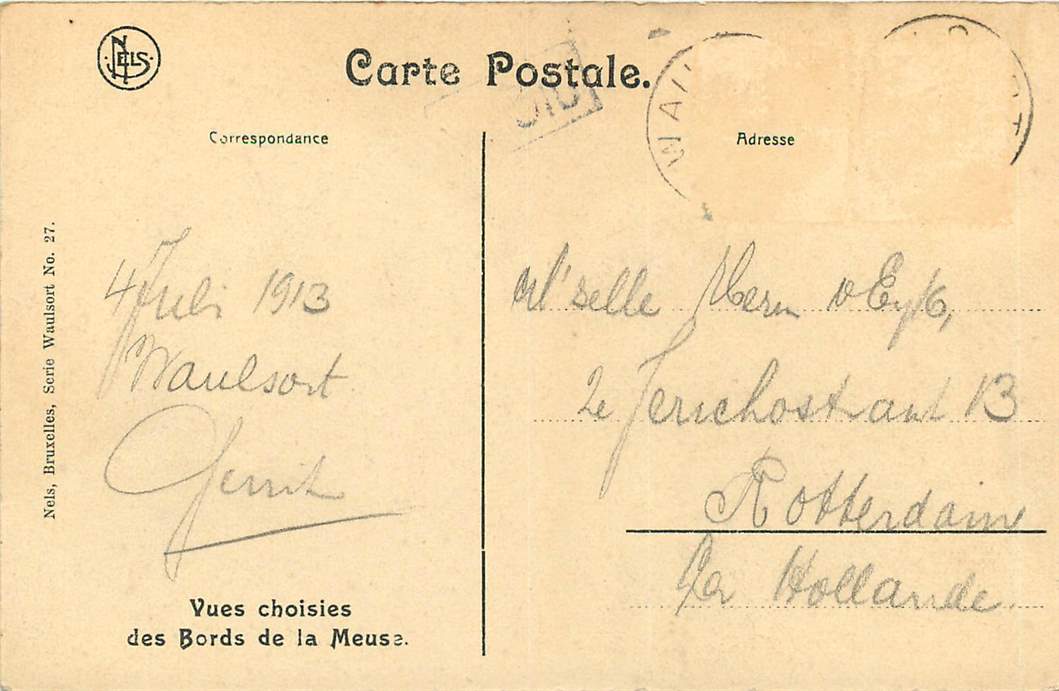 NELS
Carte Postale.
Correspondance
Adresse
Nels, Bruxelles, Serie Waulsort No. 27.
4 Juli 1913
Waulsort
Gerrit
M'selle v Eyk,
2e Jerichostraat 13
Rotterdam
La Hollande
Vues choisies
des Bords de la Meuse.